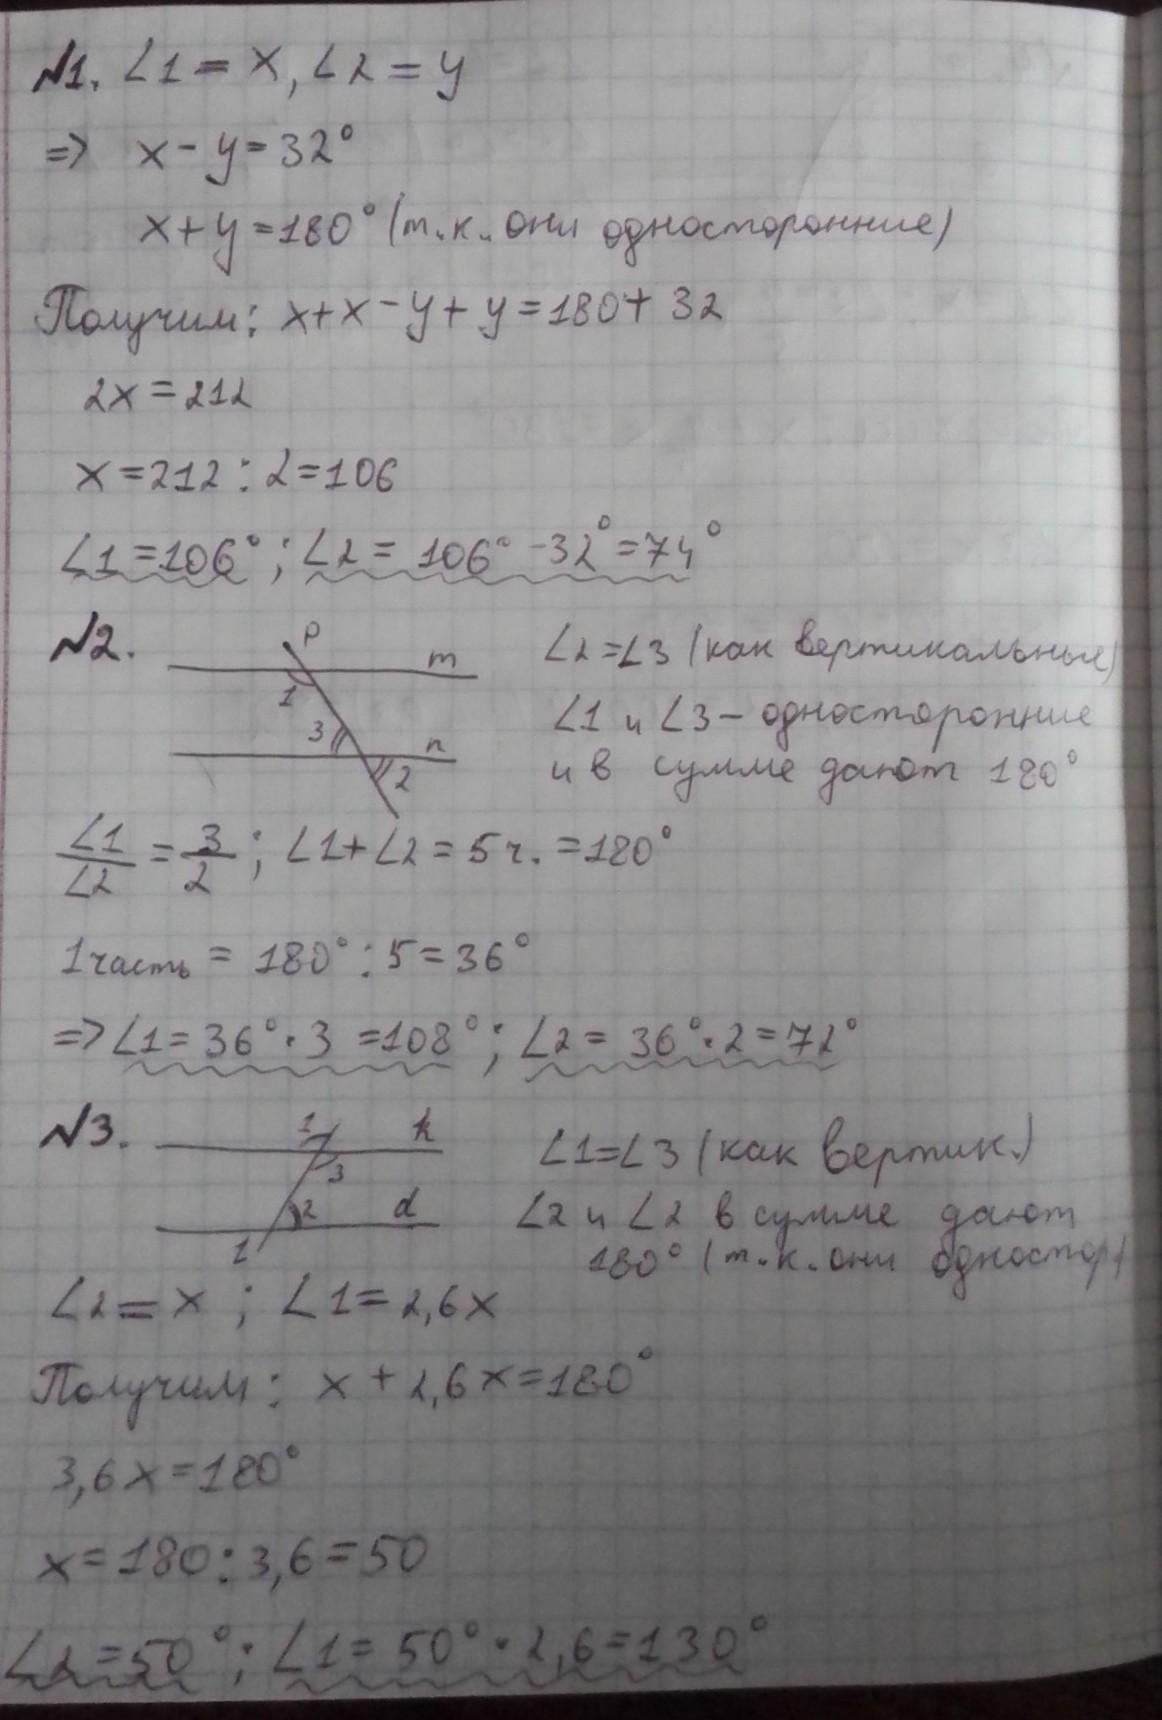 №1. ∠1 = x, ∠2 = y
=> x - y = 32°
x + y = 180° (т.к. они односторонние)
Получим: x + x - y + y = 180 + 32
2x = 212
x = 212 : 2 = 106
∠1 = 106°; ∠2 = 106° - 32° = 74°
№2.
p
m
1
3
n
2
∠2 = ∠3 (как вертикальные)
∠1 и ∠3 - односторонние
и в сумме дают 180°
∠1/∠2 = 3/2; ∠1 + ∠2 = 5 ч. = 180°
1 часть = 180° : 5 = 36°
=> ∠1 = 36° · 3 = 108°; ∠2 = 36° · 2 = 72°
№3.
1
k
3
2
d
1
∠1 = ∠3 (как вертик.)
∠2 и ∠2 в сумме дают
180° (т.к. они одностор)
∠2 = x; ∠1 = 2,6x
Получим: x + 2,6x = 180°
3,6x = 180°
x = 180 : 3,6 = 50
∠2 = 50°; ∠1 = 50° · 2,6 = 130°